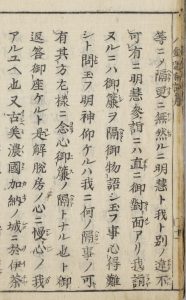 等ニノ隔更ニ無然ルニ明慧ト我ト別ノ違不
可有ニ明慧參詣ニハ直ニ御對面アリ我詣
ヌルニハ御簾ヲ隔御物語シ玉フ事心得難
シト問玉フ明神仰ケルハ我ニ何ノ隔事ノ可
有其方左樣ニ念心御簾ノ隔トナル也ト御
返答御座ケルト是解脫房ノ心ニ慢心ノ我
アルユヘ也又古美濃國加納ノ城ニ於伊茶